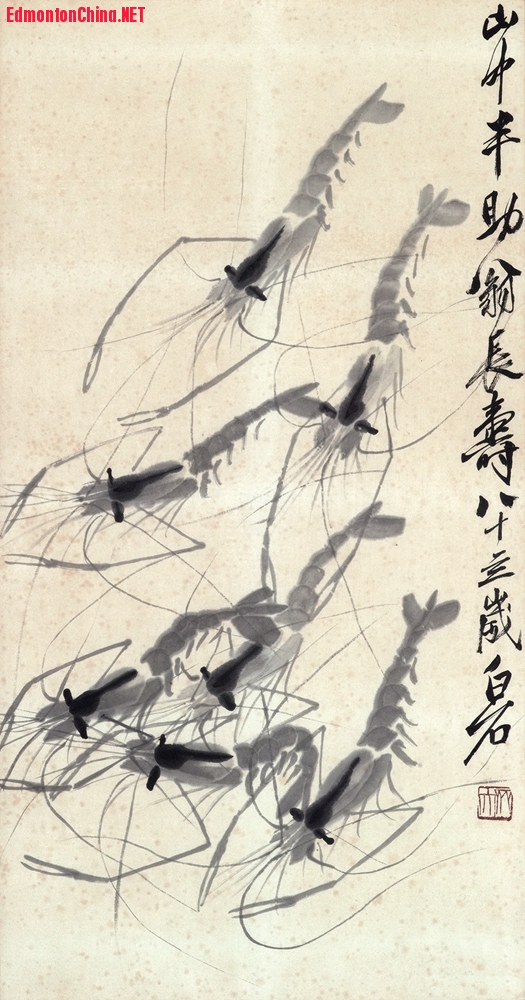 EdmontonChina.NET
山中丰助翁長壽八十三歲白石